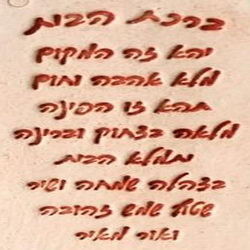 ברכת הבית
יהא זה המקום
מלא אהבה וחום
תהא זו הפינה
מלאה בצחוק וברינה
ותמלא הבית
בצהלה שמחה ושיר
שטוף שמש זהובה
ואור מאיר